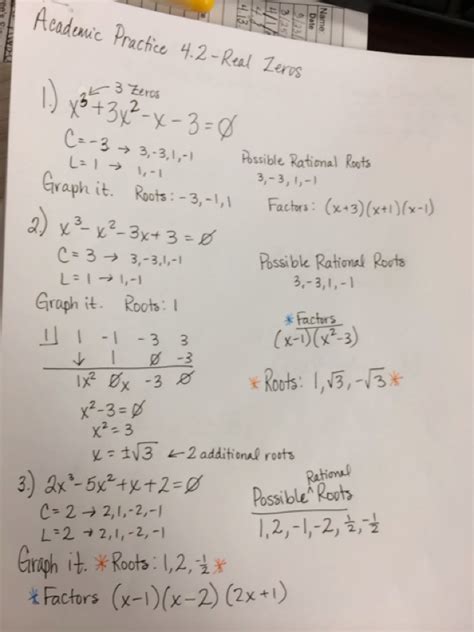 Name
Date
Academic Practice 4.2-Real Zeros
1.) x³+3x²-x-3=∅ ← 3 Zeros
C=-3 → 3,-3,1,-1
L=1 → 1,-1
Possible Rational Roots
3,-3,1,-1
Graph it. Roots: -3,-1,1
Factors: (x+3)(x+1)(x-1)
2.) x³-x²-3x+3=∅
C=3 → 3,-3,1,-1
L=1 → 1,-1
Possible Rational Roots
3,-3,1,-1
Graph it. Roots: 1
*Factors
(x-1)(x²-3)
1| 1 -1 -3 3
↓ 1 ∅ -3
1x² ∅x -3 ∅
*Roots: 1,√3,-√3*
x²-3=∅
x²=3
x=±√3 ← 2 additional roots
3.) 2x³-5x²+x+2=∅
C=2 → 2,1,-2,-1
L=2 → 2,1,-2,-1
Possible ^Rational Roots
1,2,-1,-2,½,-½
Graph it. *Roots: 1,2,-½*
*Factors (x-1)(x-2)(2x+1)